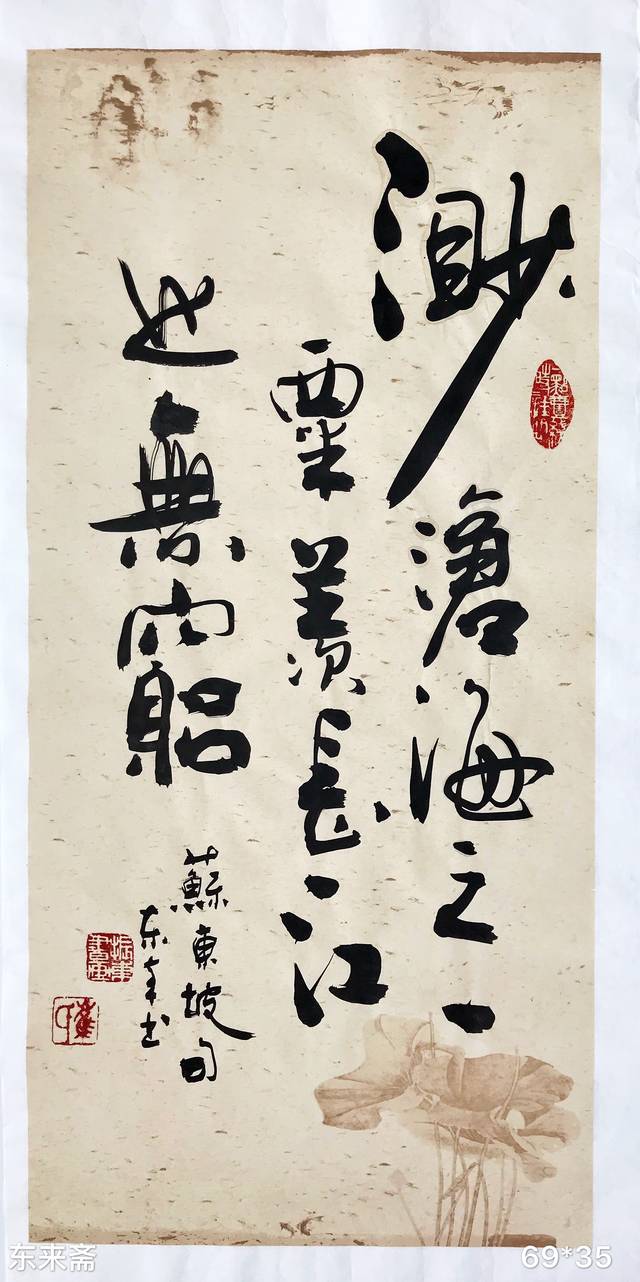 渺滄海之一
粟羨長江
之無竆
蘇東坡句
东来斋
69*35